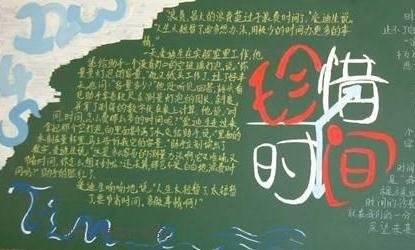 浪费，最大的浪费莫过于浪费时间了。"爱迪生说。
"人生太短暂了，要多想办法，用极少的时间办更多的事
情。"
一天，爱迪生在实验室里工作，他
递给助手一个没有灯口的空玻璃灯泡，说："你
量量灯泡的容量。"他又低头工作了。过了好半
天，他问："容量多少？"他没听见回答，转头看
见助手拿着软尺在测量灯泡的周长、斜度，
并拿了测得的数字伏在桌上计算。他说："时
间，时间，怎么费那么多的时间呢？"爱迪生走过来，
拿起那个空灯泡，向里面斟满了水，交给助手，说："里面的
水倒在量杯里，马上告诉我它的容量。"助手立刻读出了
数字。爱迪生说："这是多么容易的测量方法啊，它又准确，又
节省时间，你怎么想不到呢？还去算，那岂不是白白地浪费时
间吗？"助手的脸红了。
爱迪生喃喃地说："人生太短暂了，太短暂
了，要节省时间，多做事情啊！"
珍惜
时间
Time
时间
时间的浪费